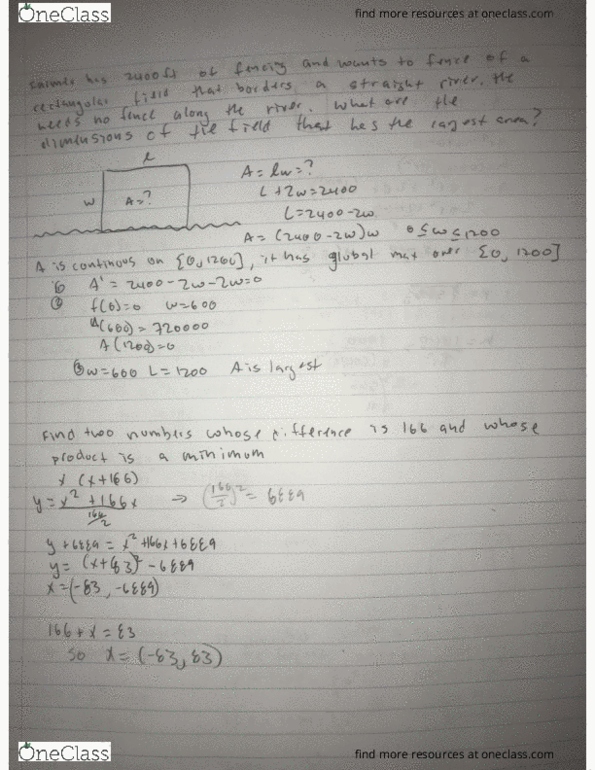 OneClass
find more resources at oneclass.com
has 2400ft of fencing and wants to fence of a
rectangular field that borders a straight river. the
needs no fence along the river. What are the
dimensions of the field that has the largest area?
l
w A=?
A = lw = ?
L + 2w = 2400
L = 2400 - 2w
A = (2400 - 2w)w 0 ≤ w ≤ 1200
A is continous on [0,1200], it has global max over [0,1200]
① A' = 2400 - 2w - 2w = 0
② f(0) = 0 w = 600
A(600) = 720000
A(1200) = 0
③ w = 600 L = 1200 A is largest
Find two numbers whose difference is 166 and whose
product is a minimum
x (x+166)
y = x² + 166x → (166/2)² = 6889
166/2
y + 6889 = x² + 166x + 6889
y = (x+83)² - 6889
x = (-83, -6889)
166 + x = 83
so x = (-83, 83)
OneClass
find more resources at oneclass.com